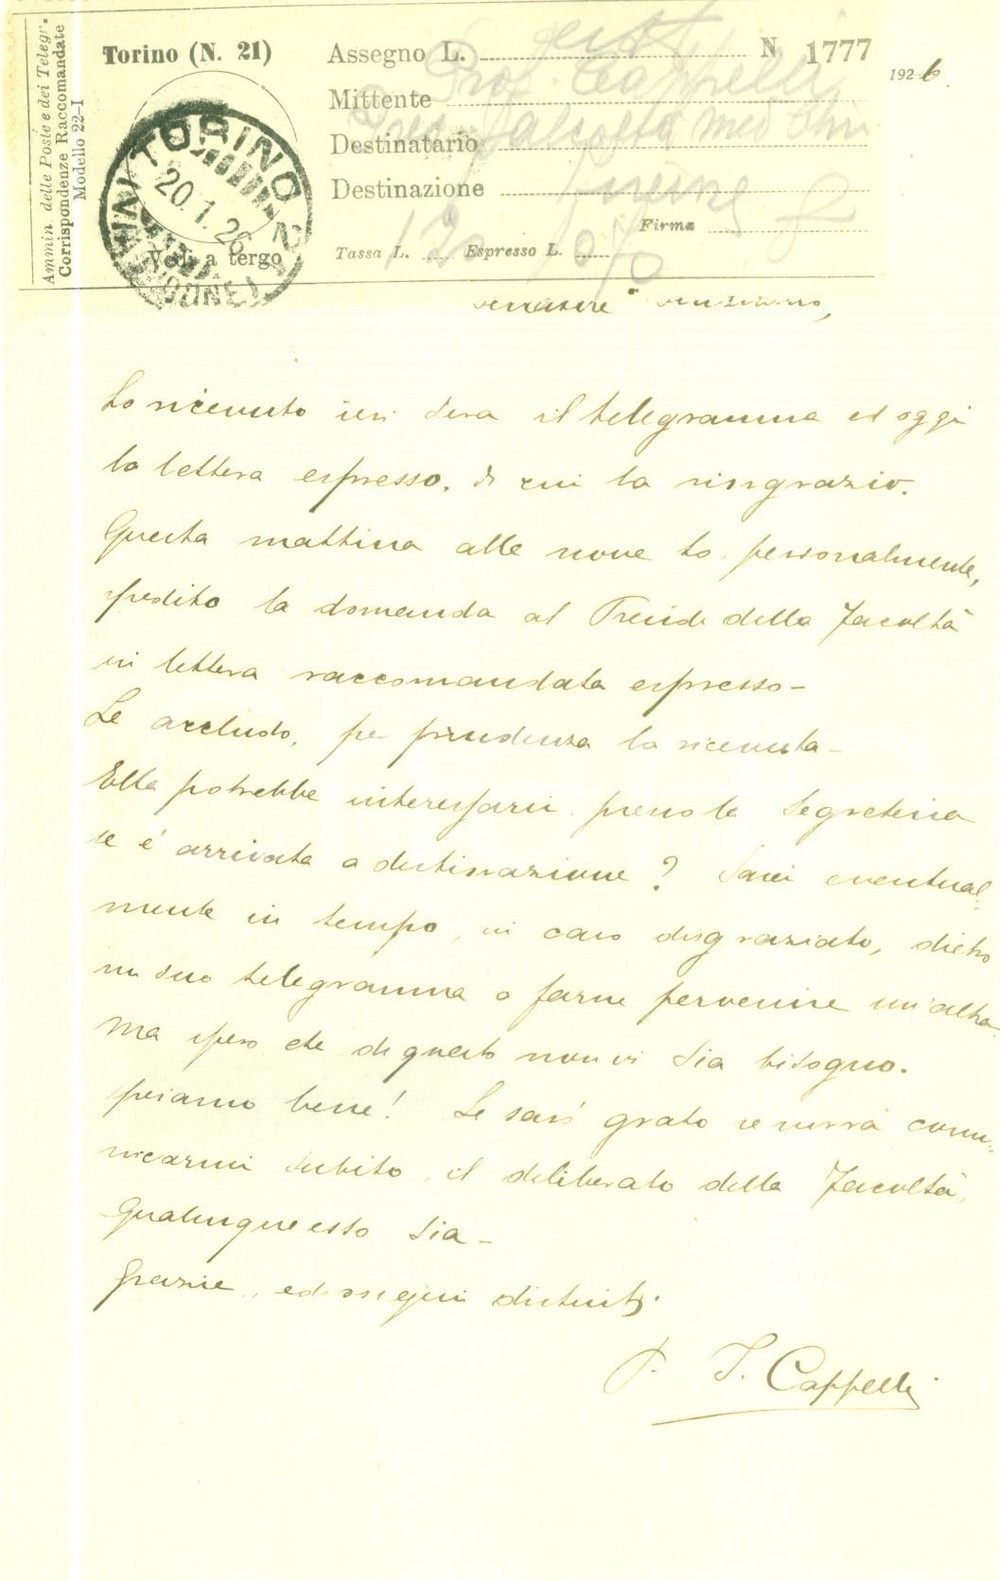 Ammin. delle Poste e dei Telegr.
Corrispondenze Raccomandate
Modello 22-I
Torino (N. 21)
Assegno L. N 1777
192 6
Mittente Prof. Cappelli
Destinatario
Destinazione Firenze
Firma
Tassa L. 120 Espresso L.
Vedi a tergo
TORINO
20.1.26
ho ricevuto ieri sera il telegramma ed oggi
la lettera espresso, di cui la ringrazio.
Questa mattina alle nove ho, personalmente,
spedito la domanda al Preside della Facoltà
in lettera raccomandata espresso -
Le accludo, per prudenza la ricevuta -
Ella potrebbe interessarsi presso la Segreteria
se è arrivata a destinazione? Sarei eventual=
mente in tempo, in caso disgraziato, dietro
un suo telegramma a farne pervenire un'altra.
Ma spero che di questo non vi sia bisogno.
Speriamo bene! Le sarò grato se vorrà comu=
nicarmi subito il deliberato della Facoltà,
Qualunque esso sia -
Grazie, ed ossequi distinti.
J. Cappelli